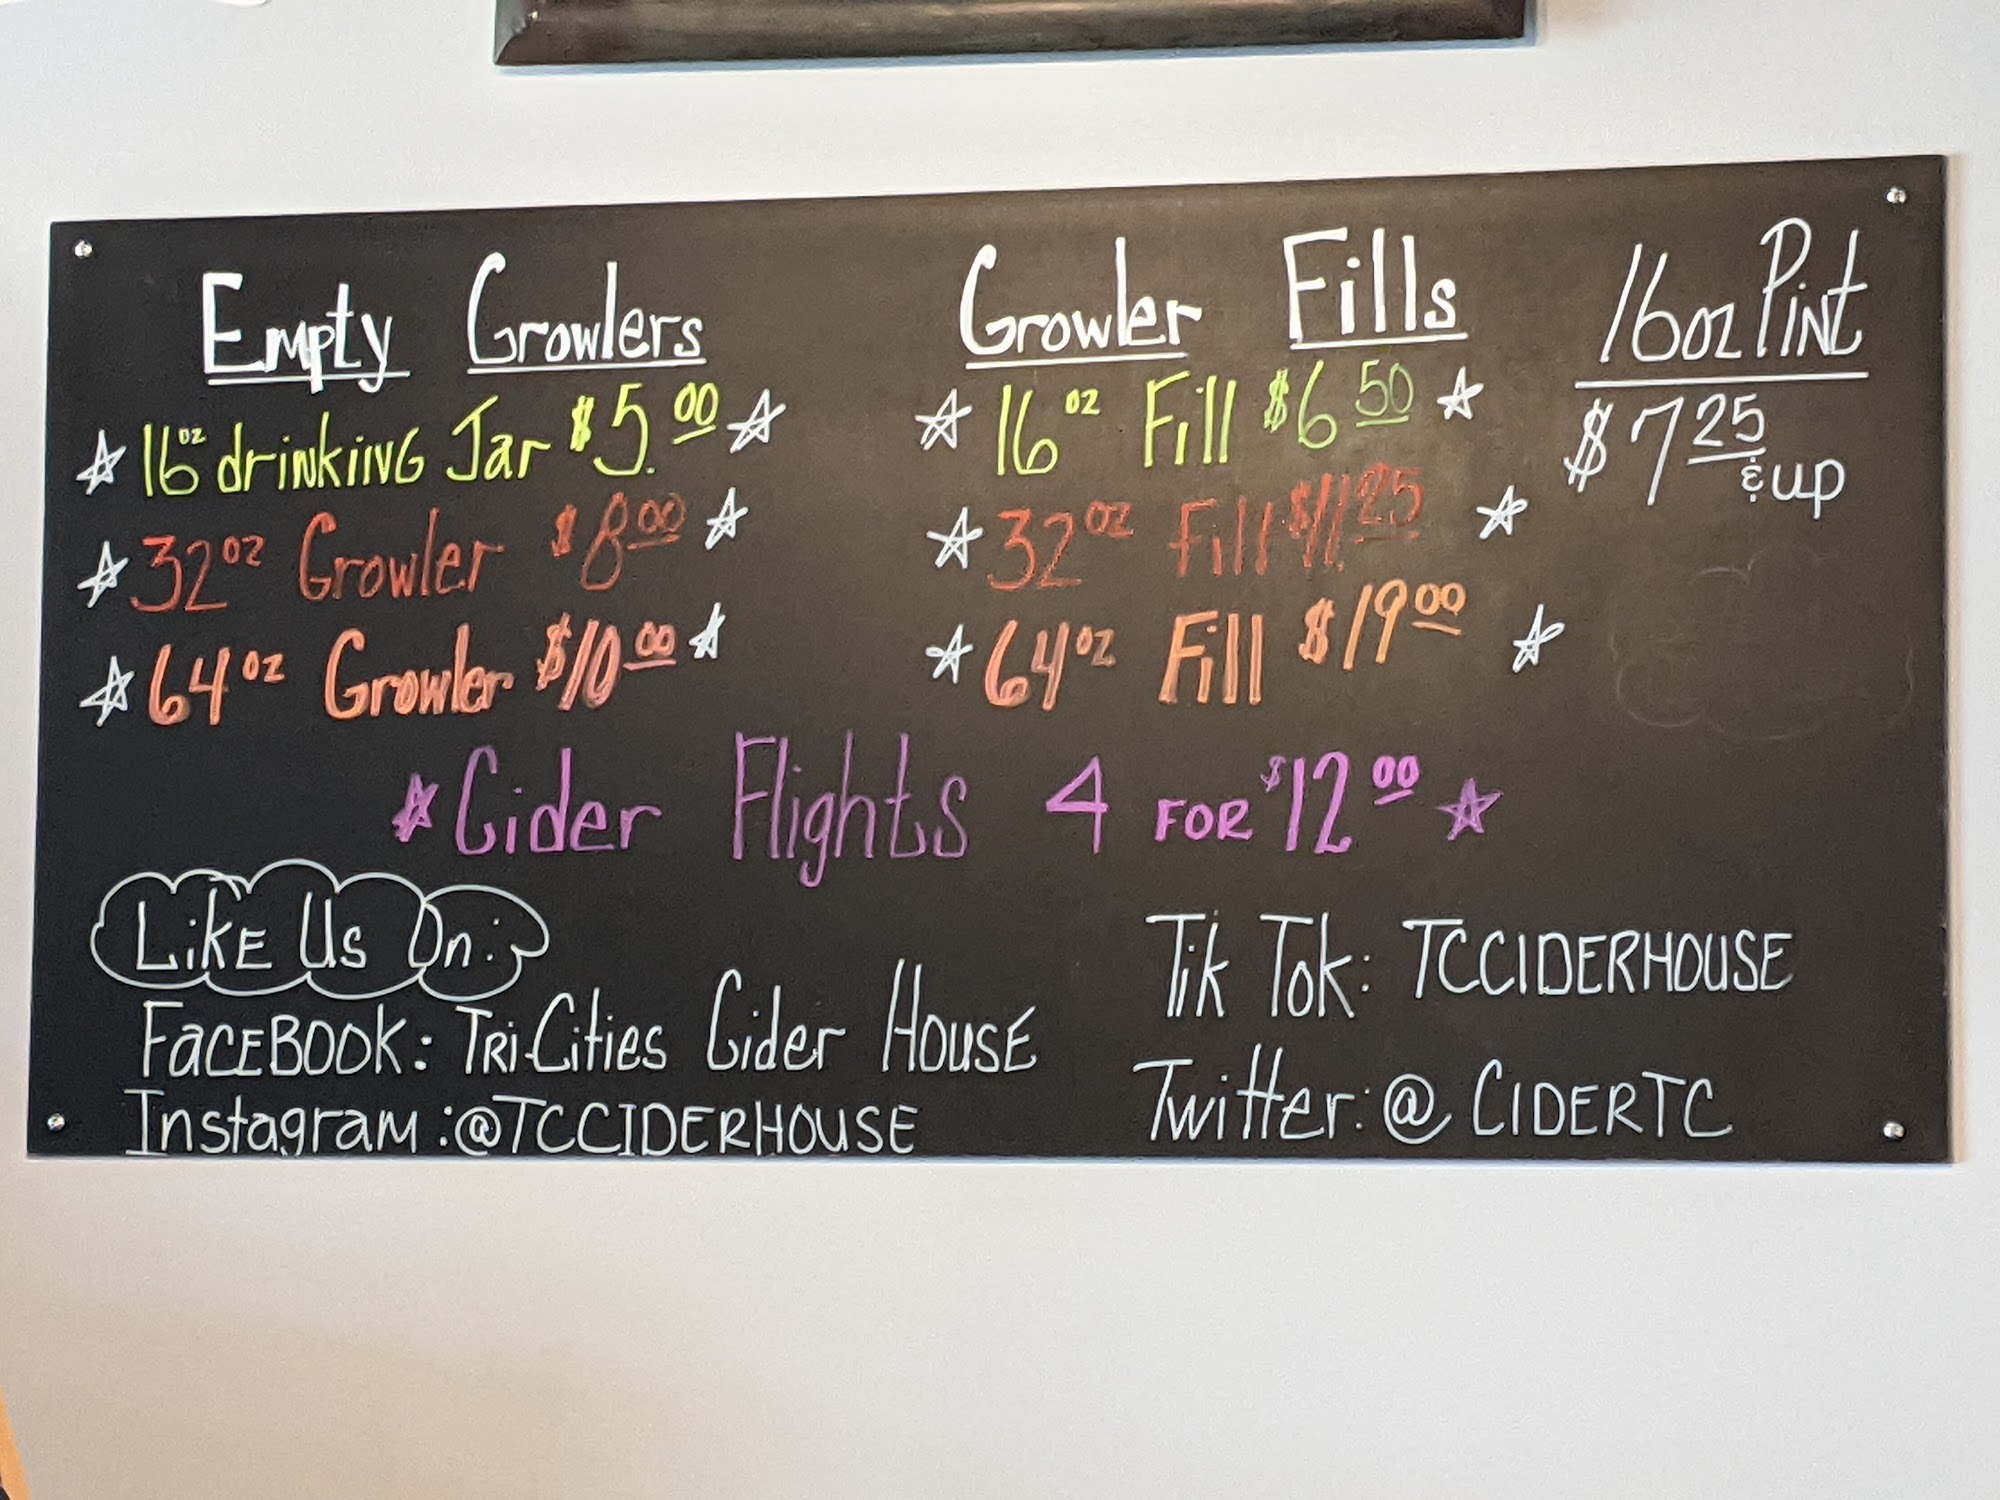 Empty Growlers
16oz drinking Jar $5.00
32oz Growler $8.00
64oz Growler $10.00
Growler Fills
16oz Fill $6.50
32oz Fill $11.25
64oz Fill $19.00
16oz Pint
$7.25
& up
Cider Flights 4 FOR $12.00
Like Us On:
FaceBOOK: Tri-Cities Cider House
Instagram: @TCCIDERHOUSE
Tik Tok: TCCIDERHOUSE
Twitter: @CIDERTC